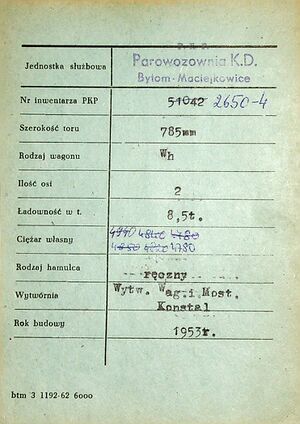 P K P
Jednostka służbowa Parowozownia K.D.
Bytom-Maciejkowice
Nr inwentarza PKP 51042 2650-4
Szerokość toru 785mm
Rodzaj wagonu Wh
Ilość osi 2
Ładowność w t. 8,5t.
Ciężar własny 4780
4780
Rodzaj hamulca ręczny
Wytwórnia Wytw. Wag.i Most.
Konstal
Rok budowy 1953r.
btm 3 1192-62 6000